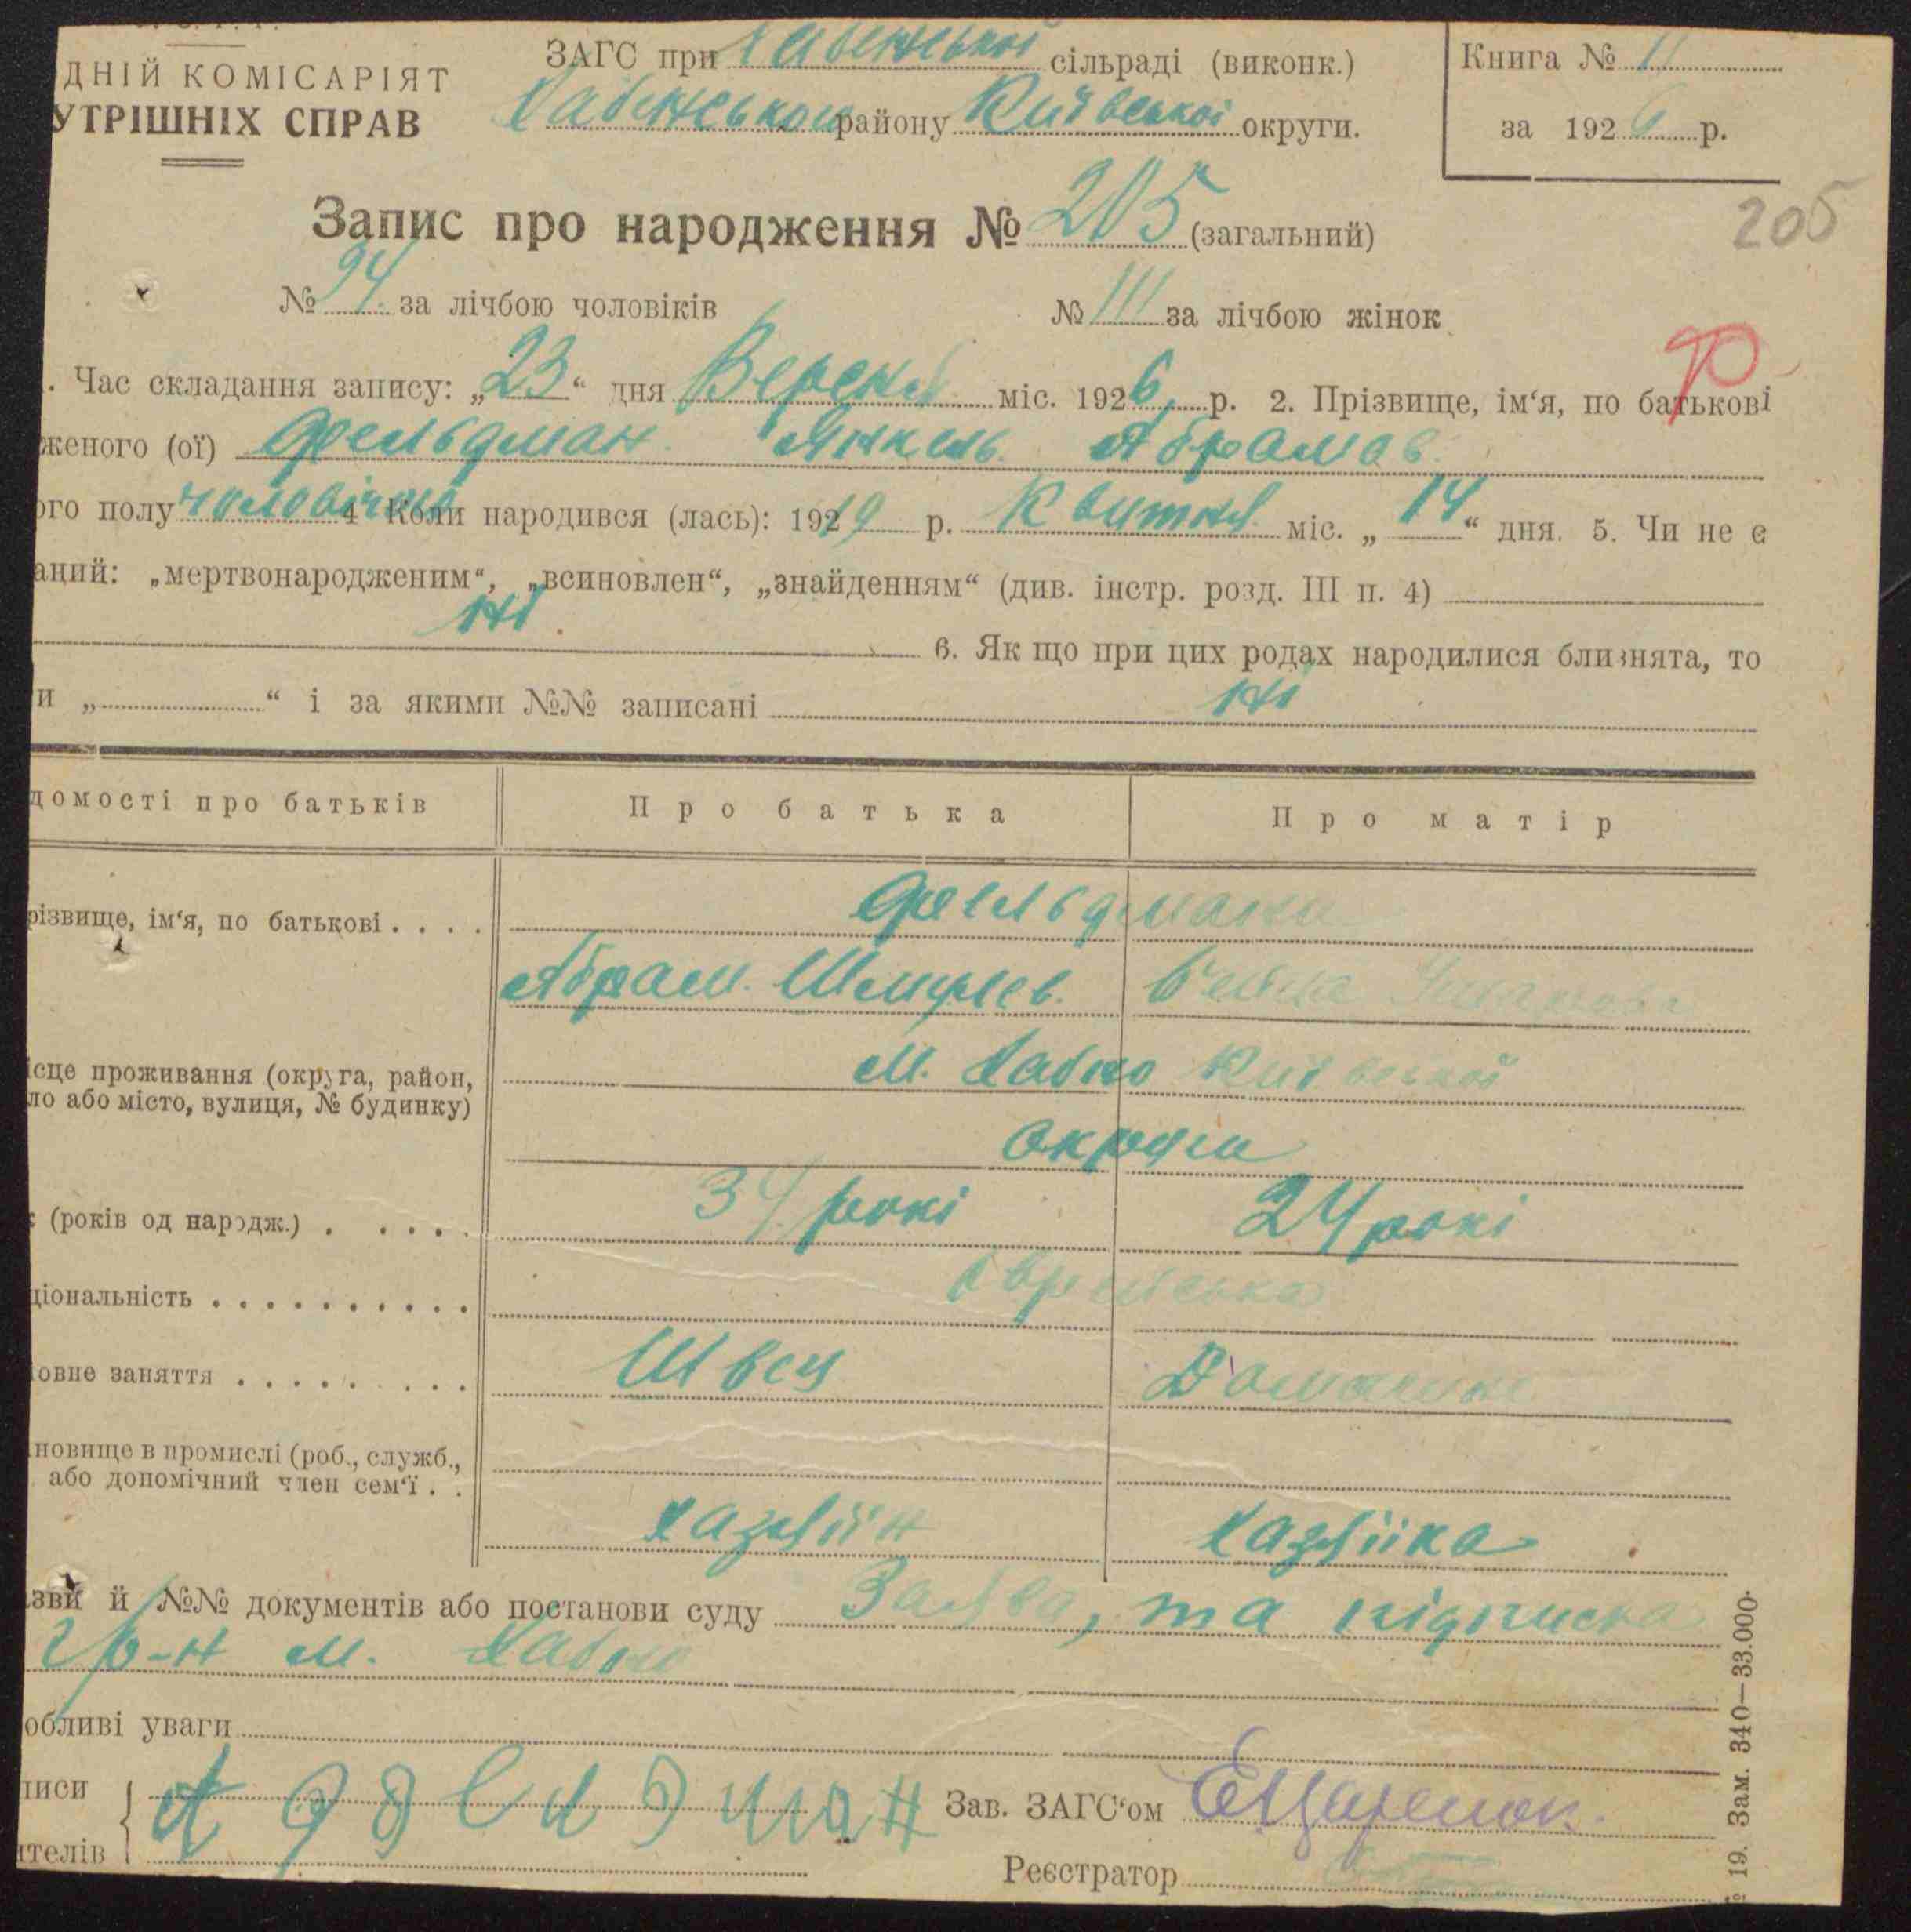 ДНІЙ КОМІСАРІЯТ
УТРІШНІХ СПРАВ
ЗАГС при Хабенської сільраді (виконк.)
Хабенського району Київської округи.
Книга № 11
за 1926 р.
Запис про народження № 205 (загальний)
205
№ 94 за лічбою чоловіків № 111 за лічбою жінок
. Час складання запису: „23“ дня Вересня міс. 1926 р. 2. Прізвище, ім‘я, по батькові
женого (ої) Фельдман Янкель Абрамов.
ого полу чоловічого 4 Коли народився (лась): 19219 р. Квитня міс. „14“ дня. 5. Чи не є
аний: „мертвонародженим“, „всиновлен“, „знайденням“ (див. інстр. розд. III п. 4)
Ні
6. Як що при цих родах народилися близнята, то
и „ “ і за якими №№ записані Ні
домості про батьків Про батька Про матір
різвище, ім‘я, по батькові . . . . Фельдмани
Абрам. Шмулев.
ісце проживання (округа, район, м. Хабно Київської
ло або місто, вулиця, № будинку)
округи
(років од народж.) . . . . . 34 рокі 24 рокі
ціональність . . . . . . . . . . Єврейська
овне заняття . . . . . . . . Швец
новище в промислі (роб., служб.,
або допомічний член сем‘ї . .
Хазяїн Хазяїка
азви й №№ документів або постанови суду Заява, та підписка
гр-н м. Хабно
обливі уваги
писи
ителів
Зав. ЗАГС‘ом
Реєстратор
№ 19. Зам. 340—33.000.